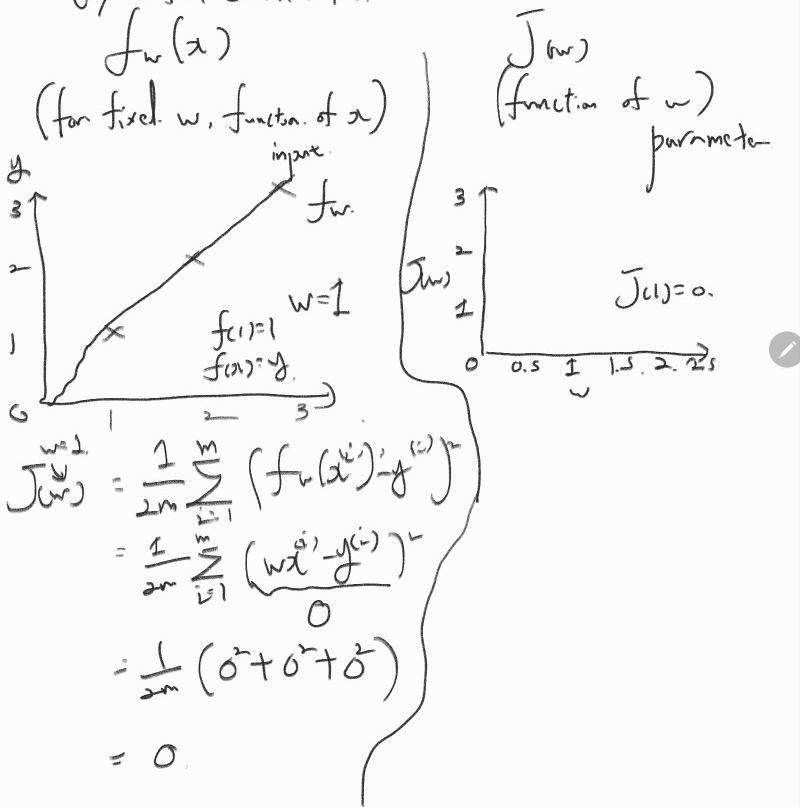 f_w(x)
(for fixed w, function of x)
input
y
3
2
1
0
1
2
3
f_w.
w=1
f(1)=1
f(x)=y.
w=1.
J(w) = 1/2m Σ_{i=1}^{m} (f_w(x^{(i)})-y^{(i)})^2
= 1/2m Σ_{i=1}^{m} (wx^{(i)}-y^{(i)})^2
0
= 1/2m (0^2+0^2+0^2)
= 0
J(w)
(function of w)
parameter
3
2
1
J(w)
J(1)=0.
0
0.5 1 1.5. 2. 2.5
w